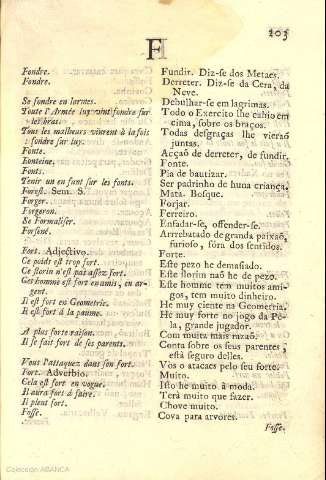 203
F
Fondre.
Fondre.
Se fondre en larmes.
Toute l'Armée luy vint fondre sur
les bras.
Tous les malheurs vinrent à la fois
fondre sur luy.
Fonte.
Fonteine.
Fonts.
Tenir un enfant sur les fonts.
Forest. Sem. S.
Forger.
Forgeron.
Se Formaliser.
Forsené.
Fort. Adjectivo.
Ce poids est trop fort.
Ce florin n'est pas assez fort.
Ces homme est fort en amis, en ar-
gent.
Il est fort en Geometrie.
Il est fort à la paume.
A plus forte raison.
Il se fait fort de ses parents.
Vous l'attaquez dans son fort.
Fort. Adverbio.
Cela est fort en vogue.
Il aura fort à faire.
Il pleut fort.
Fosse.
Fundir. Diz-se dos Metaes.
Derreter. Diz-se da Cera, da
Neve.
Debulhar-se em lagrimas.
Todo o Exercito lhe cahio em
cima, sobre os braços.
Todas desgraças lhe vieraõ
juntas.
Acçaõ de derreter, de fundir.
Fonte.
Pia de bautizar.
Ser padrinho de huna criança.
Mata. Bosque.
Forjar.
Ferreiro.
Enfadar-se, offender-se.
Arrebatado de granda paixaõ,
furioso, fóra dos sentidos.
Forte.
Este pezo he demasiado.
Este florim naõ he de pezo.
Este homem tem muitos ami-
gos, tem muito dinheiro.
He muy ciente na Geometria.
He muy forte no jogo da Pé-
la, grande jugador.
Com muita mais razaõ.
Conta sobre os seus parentes,
está seguro delles.
Vós o atacaes pelo seu forte.
Muito.
Isso he muito à moda.
Terà muito que fazer.
Chove muito.
Cova para arvores.
Fosse.
Colección ABANCA